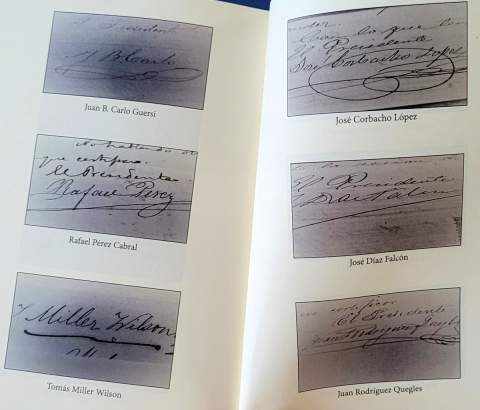 Presidente
J B Carlo
Juan B. Carlo Guersi
No habiendo
que certifico.
El Presidente
Rafael Perez
Rafael Pérez Cabral
T Miller Wilson
Tomás Miller Wilson
Con lo que
El Presidente
José Corbacho Lopez
José Corbacho López
El Presidente
José Díaz Falcón
certifico
El Presidente
Juan Rodríguez Quegles